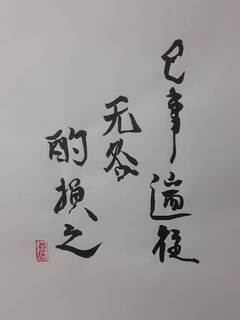 已事遄往
无咎
酌損之